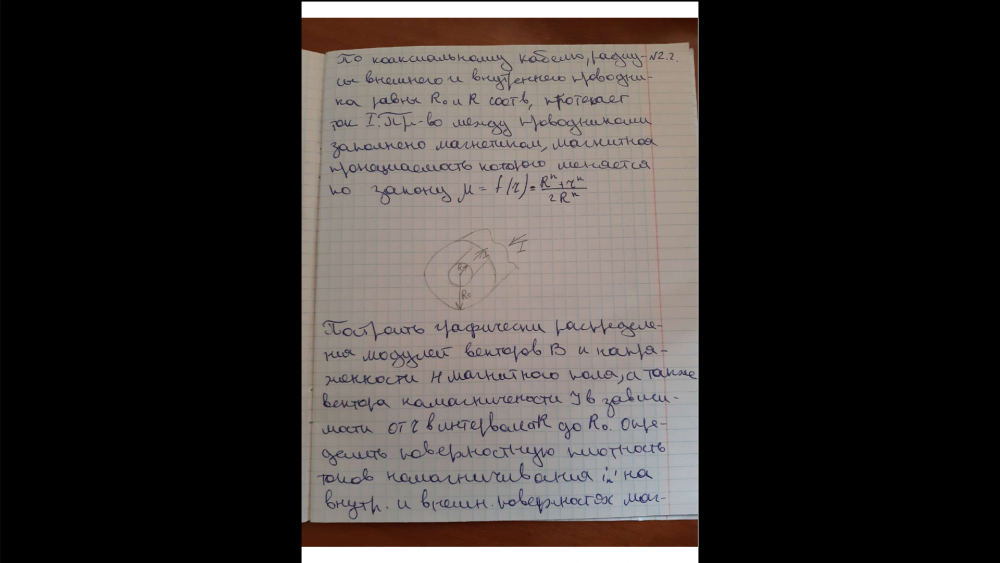 По коаксиальному кабелю, радиу- №2.2.
сы внешнего и внутреннего проводни-
ка равны R₀ и R соотв, протекает
ток I. Пр-во между проводниками
заполнено магнетиком, магнитная
проницаемость которого меняется
по закону μ = f(r) = (Rⁿ + rⁿ)/(2Rⁿ)
I
I
R
R₀
Построить графически распределе-
ния модулей векторов B и напря-
женности H магнитного поля, а также
вектора намагничености J в зависи-
мости от r в интервале от R до R₀. Опре-
делить поверностную плотность
токов намагничивания i'ₙ на
внутр. и внешн. поверностях маг-